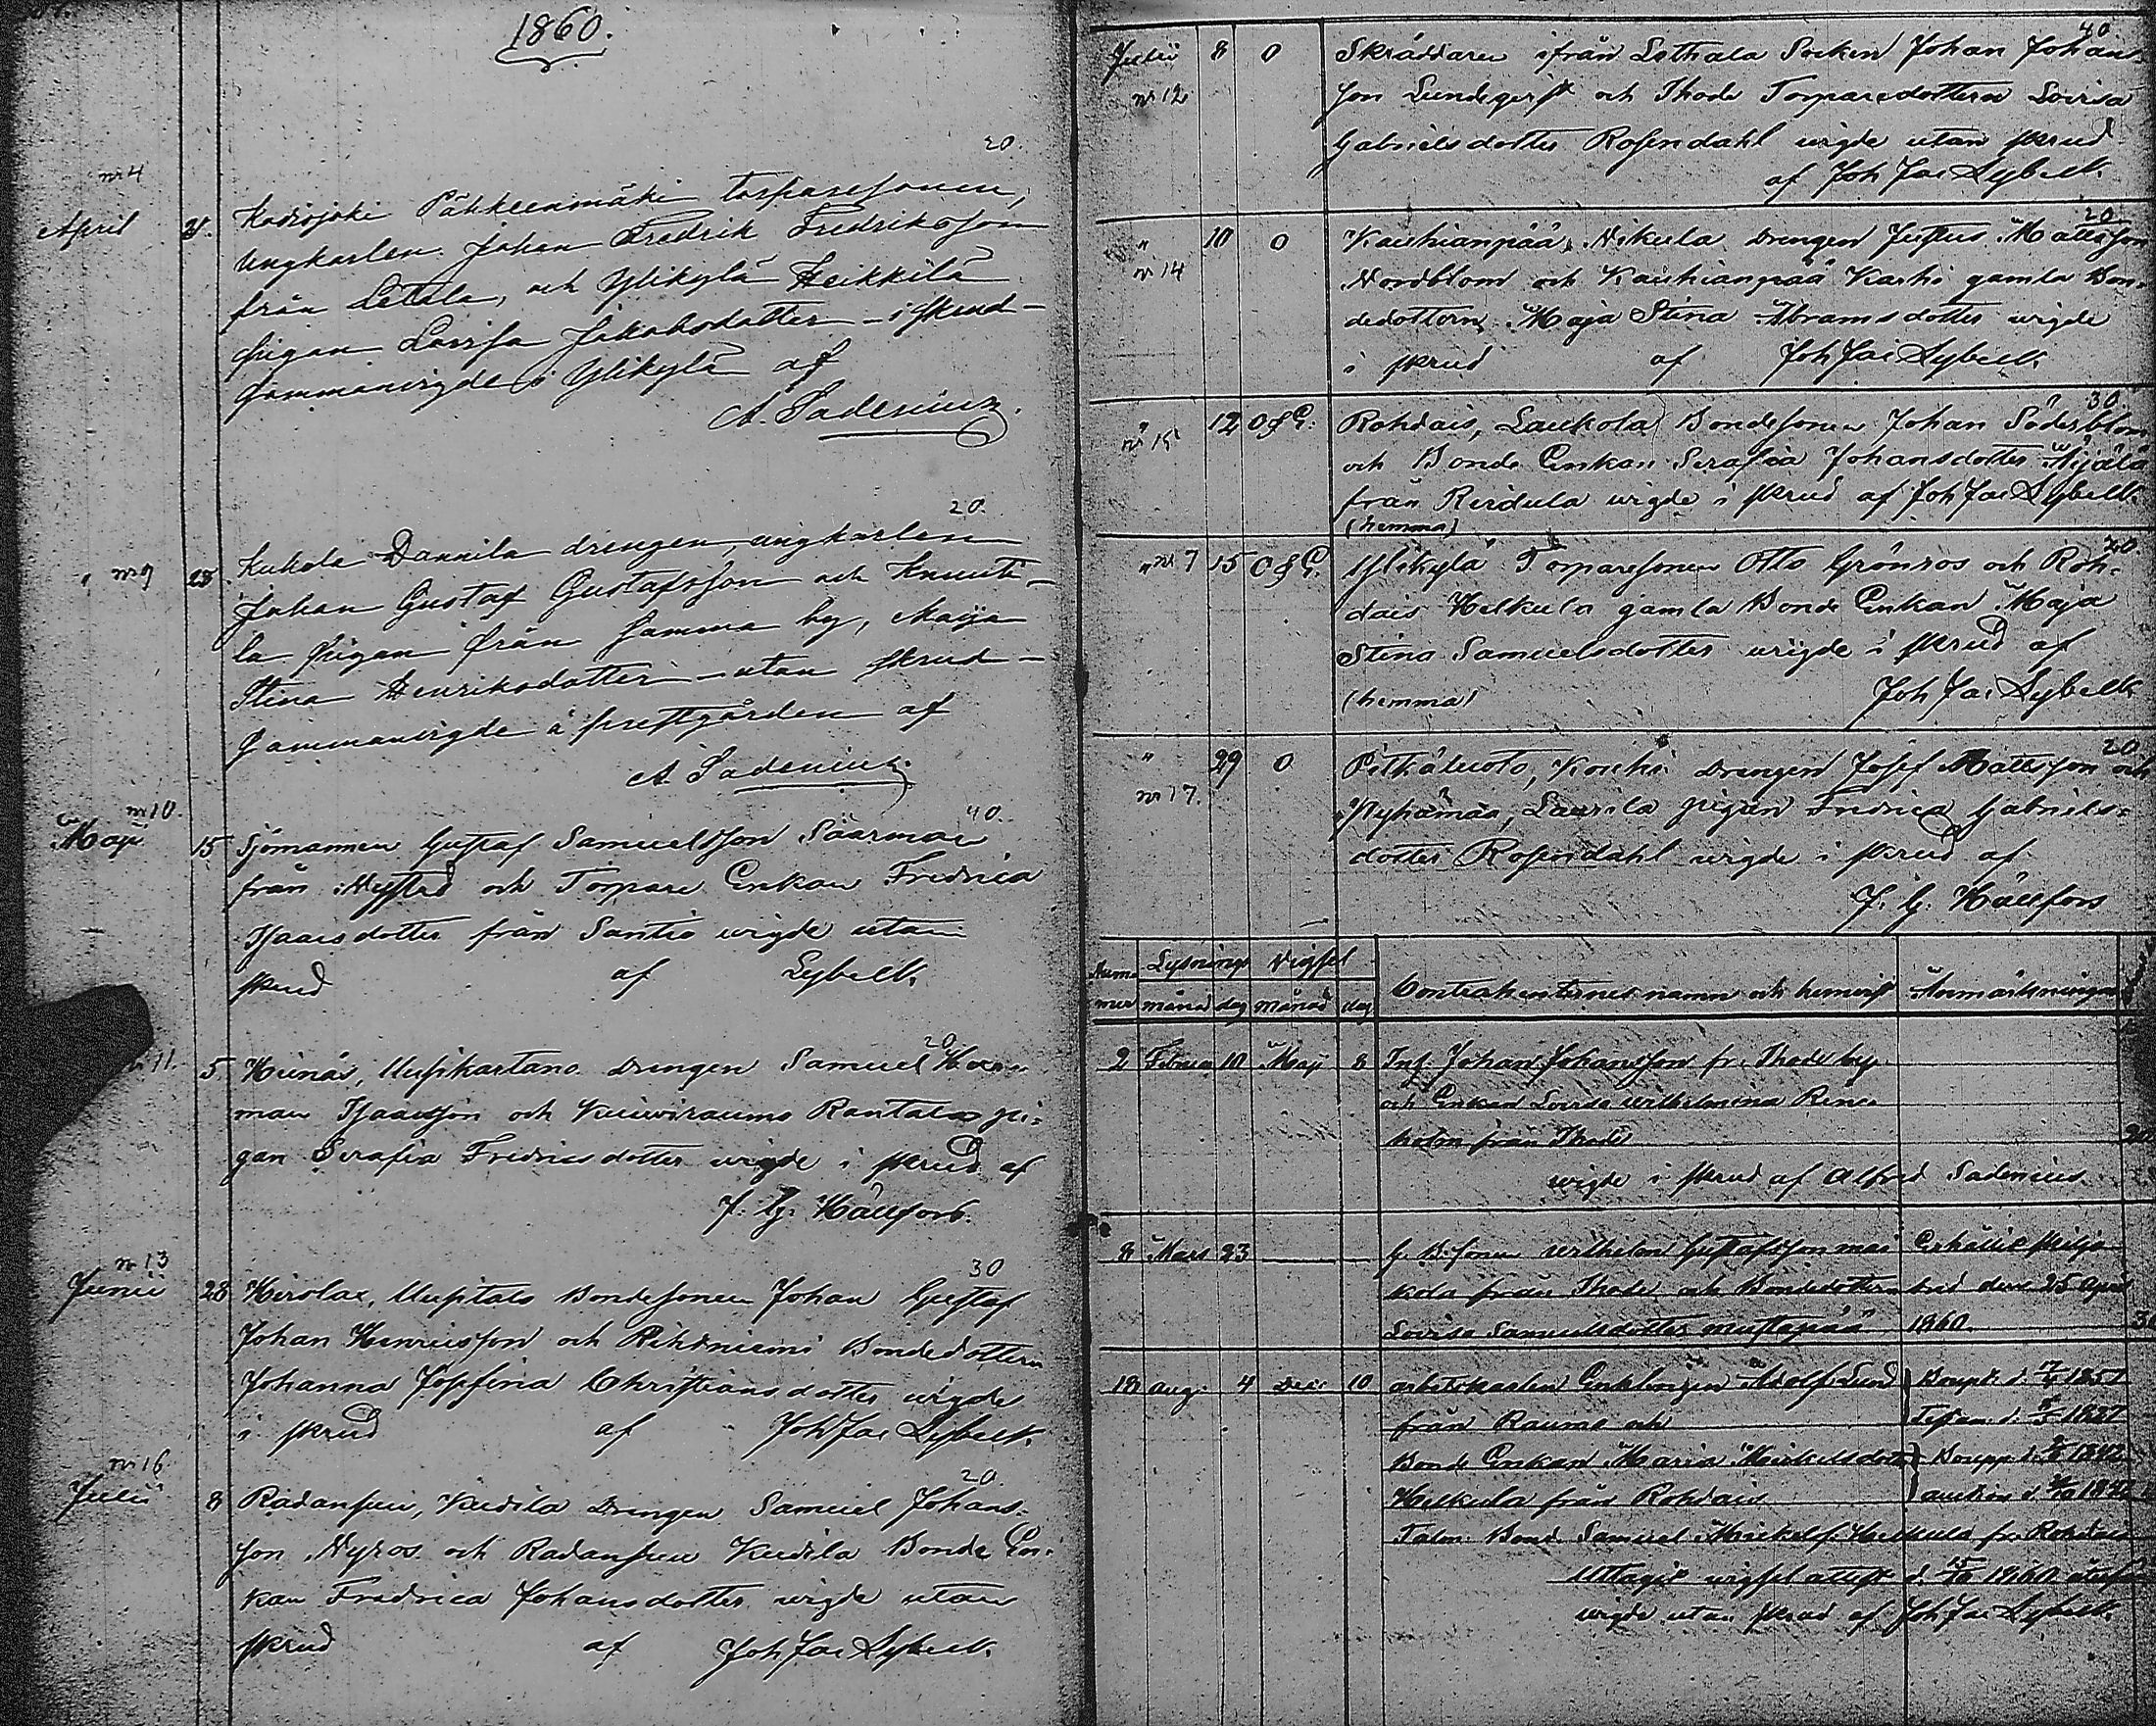 1860.
20.
nr 4
April 21. Kodisjoki Pähkeenmäki torparesonen,
Ungkarlen Johan Fredrik Fredriksson
från Letala, och Ylikylä Heikkilä
pigan Lovisa Jakobsdotter – i skrud –
sammanvigde i Ylikylä af
A. Sadenius.
20.
" nr 9 28. Kukola Dannila drengen, ungkarlen
Johan Gustaf Gustafsson och Knuuti-
la pigan från samma by, Maija
Stina Henriksdotter – utan skrud –
sammanvigde å prestgården af
A. Sadenius.
nr 10. 40.
Maji 15 Sjömannen Gustaf Samuelsson Säarman
från Nystad och Torpare Enkan Fredrica
Isaacsdotter från Santio wigde utan
skrud af Lybeck.
20
11. 5. Hinäs, Uusikartano Drengen Samuel
man Isaacsson och Kuiwiraumo Rantala pi-
gan Serafia Fredricsdotter wigde i skrud af
J. G. Hällfors.
nr 13 30
Junii 28 Hirslax, Uusitalo Bondesonen Johan Gustaf
Johan Henricsson och Rihtniemi Bondedottern
Johanna Josefina Christiansdotter wigde
i skrud af Joh Jac Lybeck.
nr 16. 20
Julii 8 Radansuu, Kudila Drengen Samuel Johans-
son Nyros och Radansuu Kudila Bonde En-
kan Fredrica Johansdotter wigde utan
skrud af Joh Jac Lybeck.
40
Julii 8 0 Skräddaren ifrån Lethala Socken Johan Johans-
nr 12 son Lundqvist och Ihode Torparedottern Lovisa
Gabrielsdotter Rosendahl wigde utan skrud
af Joh Jac Lybeck.
20
" 10 0 Kauhianpää, Nikula Drengen Justus Mattsson
nr 14 Nordblom och Kauhianpää Karhi gamla Bon-
dedottern Maja Stina Abramsdotter wigde
i skrud af Joh Jac Lybeck.
30
" 12 O & G. Rohdais, Laukola Bondesonen Johan Söderblom
nr 15 och Bonde Enkan Serafia Johansdotter Äijälä
från Reidula wigde i skrud af Joh Jac Lybeck
(hemma)
20.
" nr 7 15 O & G. Ylikylä Torparesonen Otto Grönroos och Roh-
dais Helkula gamla Bonde Enkan Maja
Stina Samuelsdotter wigde i skrud af
(hemma) Joh Jac Lybeck
20
" 29 0 Pithäluoto, Kouhi Drengen Josef Mattsson och
nr 17. Pyhämaa, Laurila pigan Fredrica Gabriels-
dotter Rosendahl wigde i skrud af
J. G. Hällfors
Num- Lysnings Vigsel
mer månad dag månad dag Contrahenternes namn och hemvist Anmärkningar
2 Februar 10 Maji 8 Inh. Johan Johansson fr. Ihode by
och Enkan Lovisa Wilhelmina Ren
holm från Ihode
wigde i skrud af Alfred Sadenius
8 Mars 23 G. B. sonen Wilhelm Gustafsson Erhållit skilje
kola från Ihode och Bondedottern bref den 25 April
Lovisa Samuelsdotter Mustapää 1860.
18 Aug. 4 Dec. 10 Arbetskarlen Enklingen Adolf Lund
från Raumo och
Bonde Enkan Maria Michelsdotter
Helkula från Rohdais
Talm. Bond. Samuel Michelss. Helkula fr. Rohdais
Uttagit wigsel attest d. 1860
wigde utan skrud af Joh Jac Lybeck.